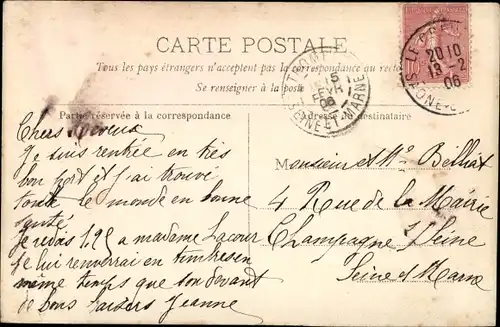 CARTE POSTALE
Tous les pays étrangers n'acceptent pas la correspondance au recto
Se renseigner à la poste
LE CREU
20 10
13 - 2
06
SAÔNE
THOM
5
EVR
06
SEINE ET MARNE
Partie réservée à la correspondance
Adresse du destinataire
Chers
Je suis rentrée en très
bon port et j'ai trouvé
toute le monde en bonne
santé
je redois 1.25 a madame Lacour
je lui renverrai en timbres en
même temps que son devant
de bons baisers Jeanne
Monsieur et Me Belliat
4 Rue de la Mairie
Champagne s/ Seine
Seine et Marne